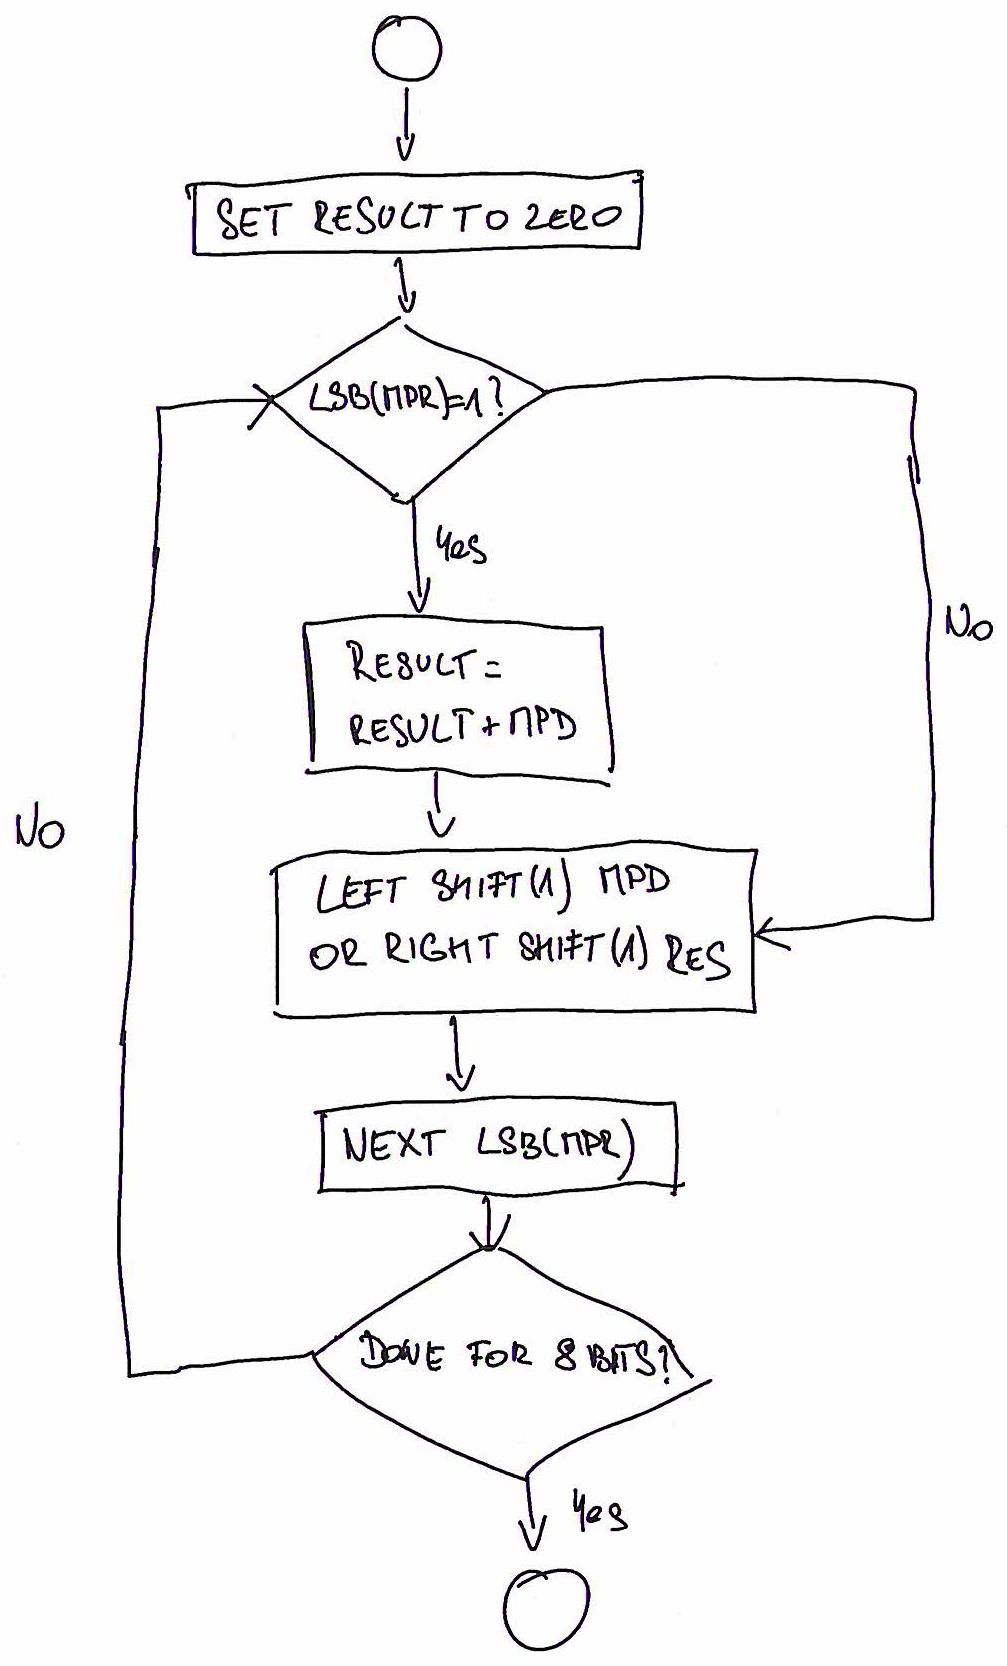 SET RESULT TO ZERO
LSB(MPR)=1?
Yes
No
RESULT =
RESULT + MPD
No
LEFT SHIFT(1) MPD
OR RIGHT SHIFT(1) RES
NEXT LSB(MPR)
DONE FOR 8 BITS?
Yes